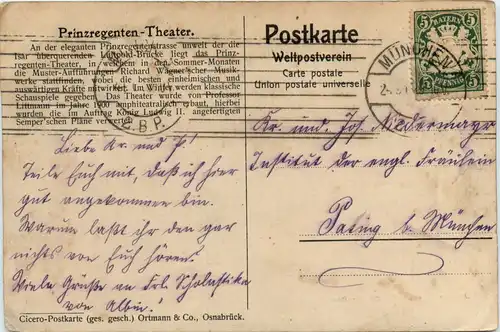 Prinzregenten-Theater.
An der eleganten Prinzregentenstrasse unweit der die
Isar überquerenden Luitpold-Brücke liegt das Prinz-
regenten-Theater, in welchem in den Sommer-Monaten
die Muster-Aufführungen Richard Wagner'scher Musik-
werke stattfinden, wobei die besten einheimischen und
auswärtigen Kräfte mitwirken. Im Winter werden klassische
Schauspiele gegeben. Das Theater wurde von Professor
Littmann im Jahre 1900 amphiteatralisch erbaut, hierbei
wurden die im Auftrag König Ludwig II. angefertigten
Semper'schen Pläne verwertet.
C.B.P.
Liebe Kr. und P.!
Teile Euch mit, daß ich hier
gut angekommen bin.
Warum laßt ihr den gar
nichts von Euch hören.
Viele Grüße an Frl. Scholastika
von Albin!
Cicero-Postkarte (ges. gesch.) Ortmann & Co., Osnabrück.
Postkarte
Weltpostverein
Carte postale
Union postale universelle
5 BAYERN 5
5 PFENNIG 5
MÜNCHEN
Kr. und Jos. Niedermayr
Institut der engl. Fräulein
Pasing b. München